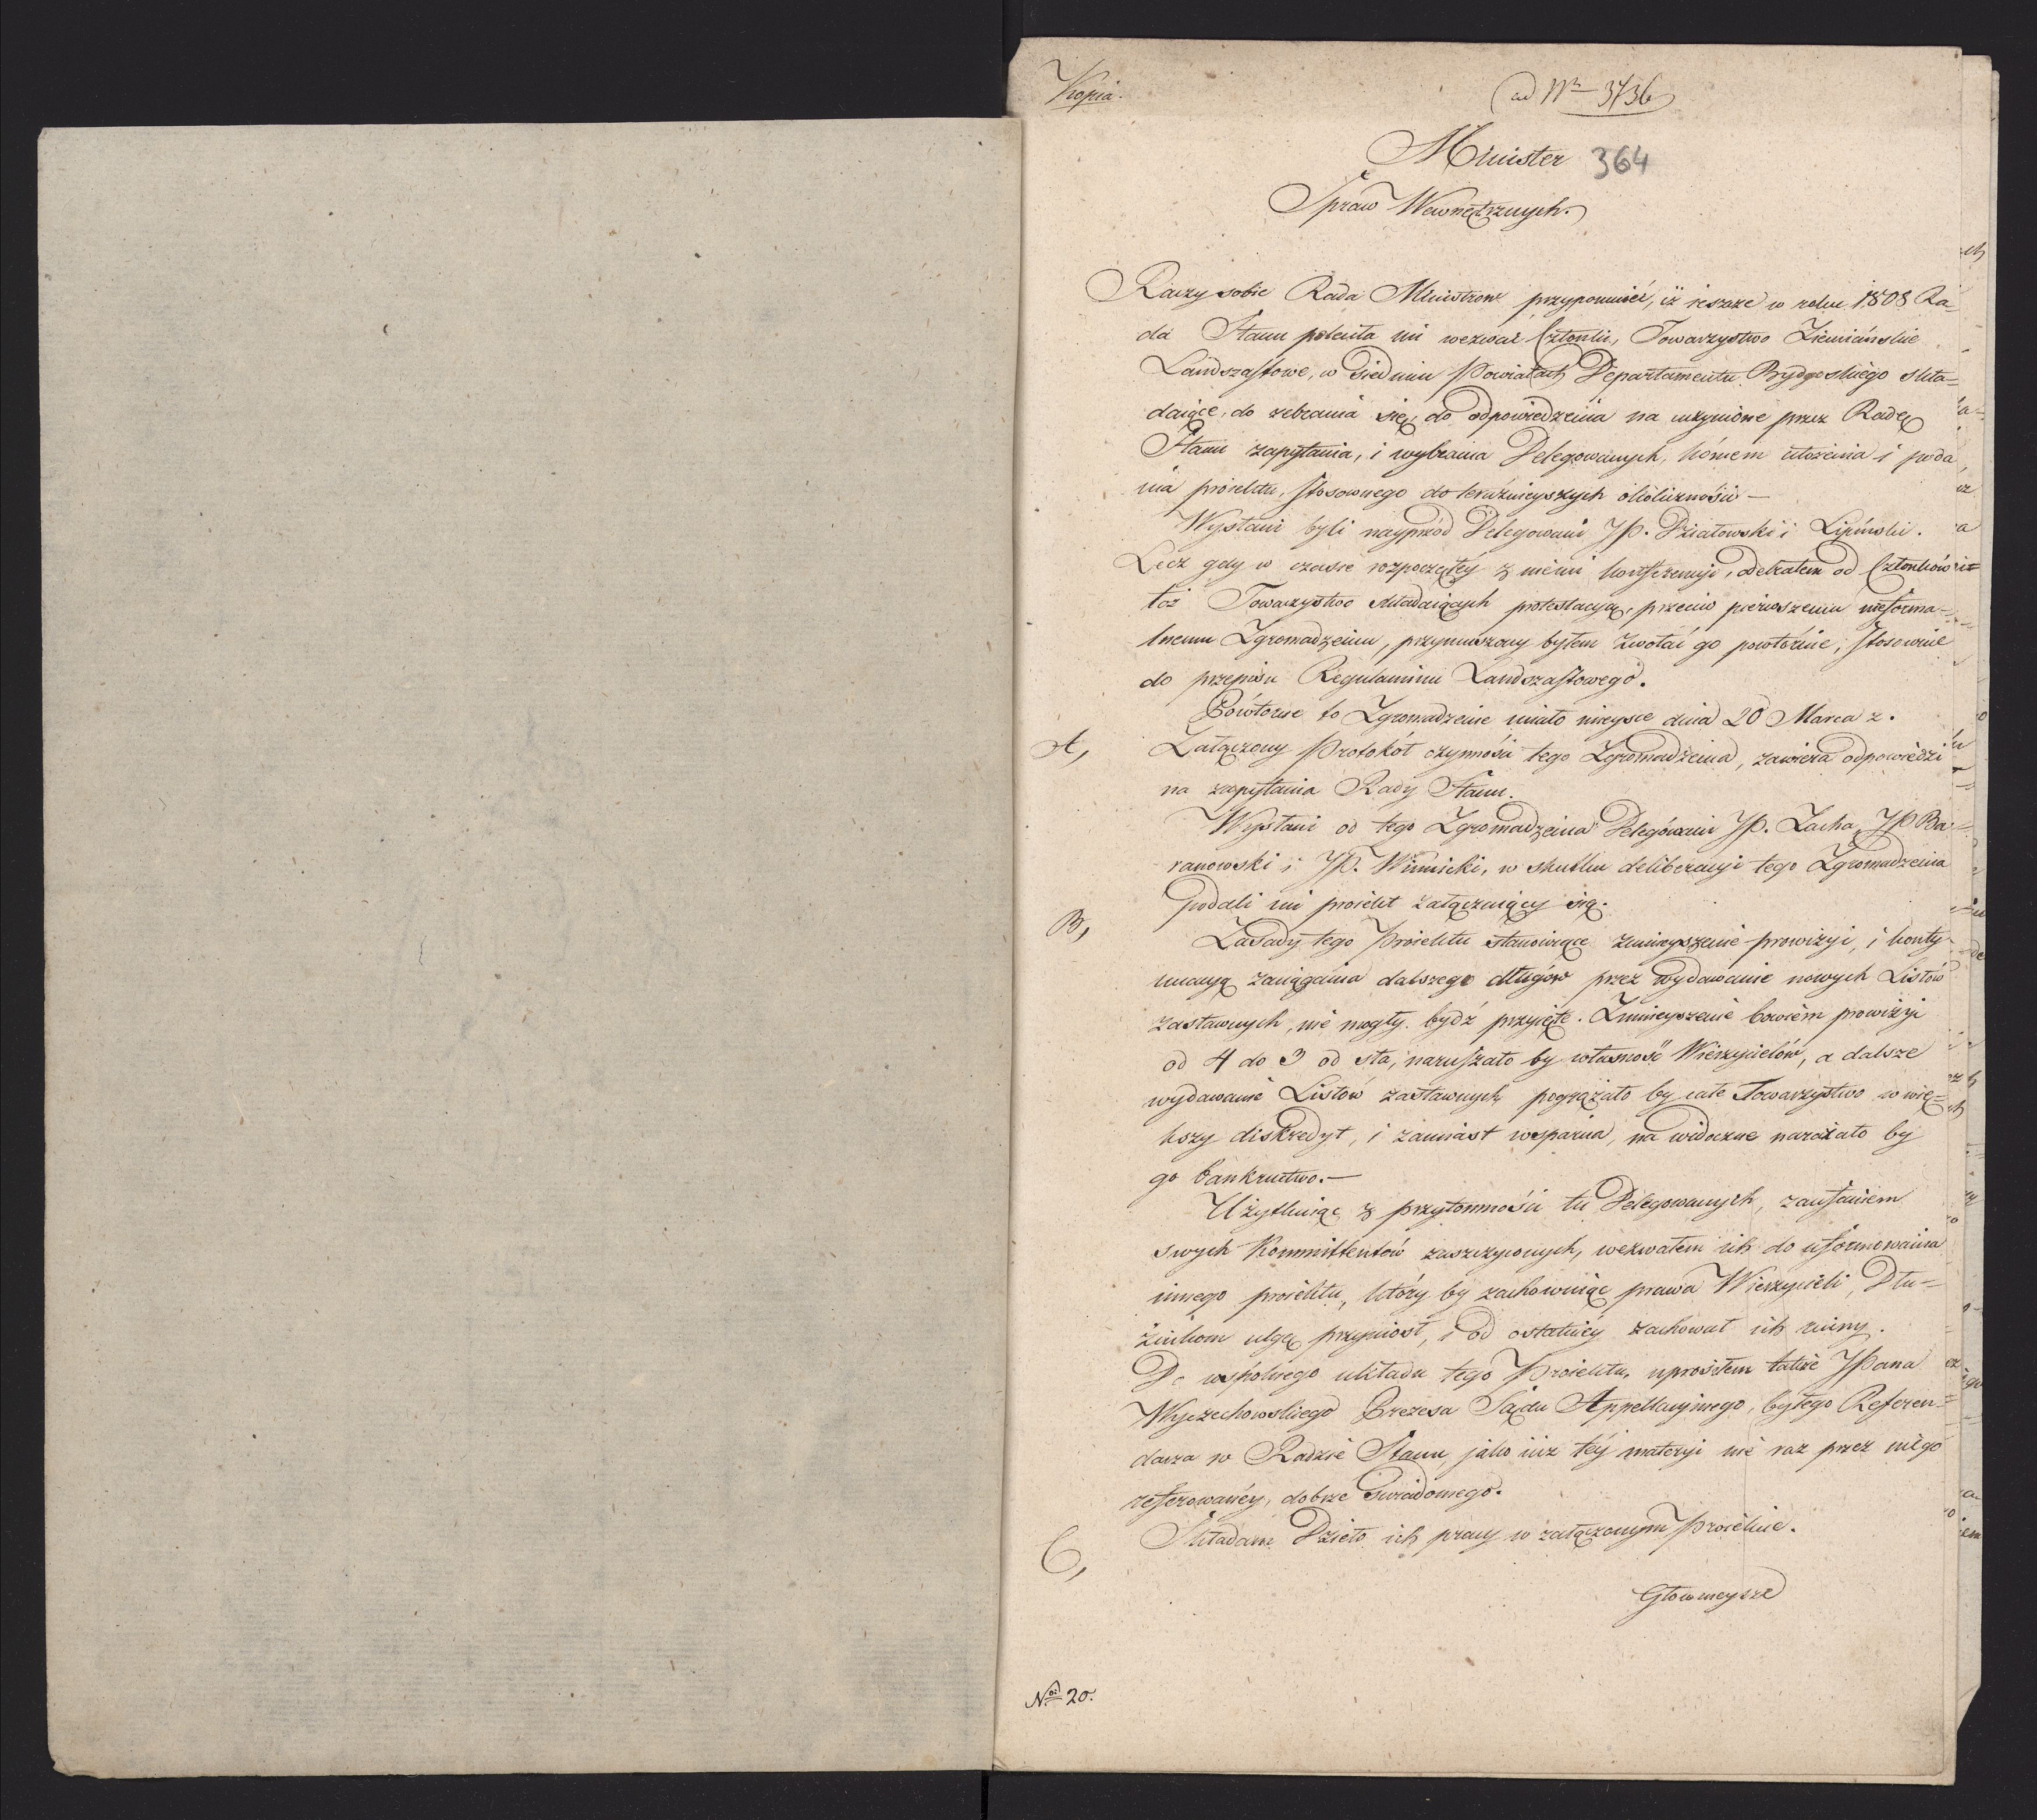 Kopia.
ad Nr 3736
Minister 364
Spraw Wewnętrznych.
Raczy sobie Rada Ministrow przypomnieć, iż ieszcze w roku 1808 Ra-
da Stanu poleciła mi wezwać Członki, Towarzystwo Ziemiańskie
Landszaftowe, w siedmiu Powiatach Departamentu Bydgoskiego skła=
daiące, do zebrania się, do odpowiedzenia na uczynione przez Radę
Stanu zapytania, i wybrania Delegowanych, końcem ułożenia i poda
nia proiektu, stosownego do teraźnieyszych okoliczności —
Wysłani byli nayprzód Delegowani JP. Działowski i Lipiński.
Lecz gdy w czasie rozpoczętéy z niemi konfferencyi, odebrałem od Członków
toż Towarzystwo składaiących protestacyą, przeciw pierwszemu nieforma=
lnemu Zgromadzeniu, przymuszony byłem zwołać go powtórnie, stosownie
do przepisu Regulaminu Landszaftowego.
Powtórne to Zgromadzenie miało mieysce dnia 20 Marca z.
A, Załączony Protokół czynności tego Zgromadzenia, zawiera odpowiedzi
na zapytania Rady Stanu.
Wysłani od tego Zgromadzenia Delegowani JP. Zacha, JP Ba=
ranowski i JP. Winnicki, w skutku deliberacyi tego Zgromadzenia
podali mi proiekt załączaiący się.
B, Zasady tego Proiektu stanowiące zmnieyszenie prowizyi, i konty-
nuacyą zaciągania dalszego długów przez wydawanie nowych Listów
zastawnych, nie mogły bydź przyięte. Zmnieyszenie bowiem prowizyi
od 4 do 3 od sta, naruszało by własność Wierzycielów, a dalsze
wydawanie Listów zastawnych pogrążało by całe Towarzystwo w wię=
kszy diskredyt, i zamiast wsparcia, na widoczne narażało by
go bankructwo.—
Użytkuiąc z przytomności tu Delegowanych, zaufaniem
swych Kommittentów zaszczyconych, wezwałem ich do uformowania
innego proiektu, który by zachowuiąc prawa Wierzycieli, Dłu=
żnikom ulgę przyniosł, i od ostatniéy zachował ich ruiny.
Do wspólnego układu tego Proiektu, uprosiłem także JPana
Wyczechowskiego Prezesa Sądu Appellacyinego, byłego Referen=
darza w Radzie Stanu, jako iuż téy materyi nie raz przez niego
referowanéy, dobrze świadomego.
C, Składam Dzieło ich pracy w załączonym Proiekcie.
Głownieysze
No. 20.